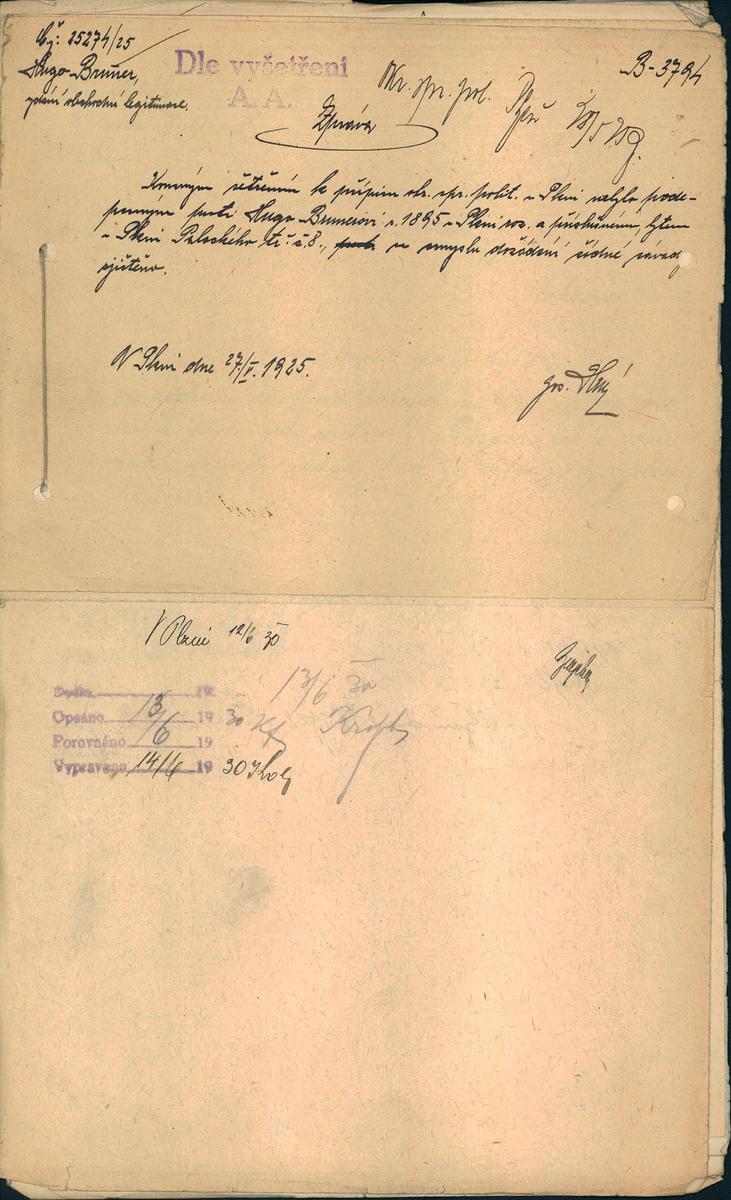 Čj: 25274/25
Hugo Brumer,
vydání obchodní legitimace.
Dle vyšetření
A. A.
Okr. spr. pol. Plzeň
B-3794
Zpráva
Konaným šetřením ke přípisu okr. spr. polit. v Plzni nebylo pode-
psaným proti Hugo Brumerovi r. 1895 v Plzni roz. a příslušnému, bytem
v Plzni Palackého tř. č. 8., ve smyslu dožádání žádné závady
zjištěno.
V Plzni dne 27/V. 1925.
V Plzni 12/6 30
Došlo 19
13/6 30
Opsáno 13/6 19 30
Porovnáno 19
Vypraveno 14/6 19 30